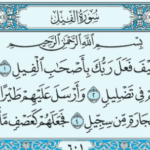 سُورَةُ الْفِيلِ
بِسْمِ اللَّهِ الرَّحْمَٰنِ الرَّحِيمِ
فَعَلَ رَبُّكَ بِأَصْحَابِ الْفِيلِ ١
فِي تَضْلِيلٍ ٢ وَأَرْسَلَ عَلَيْهِمْ طَيْرًا
مِّن سِجِّيلٍ ٤ فَجَعَلَهُمْ كَعَصْفٍ
٦٠١